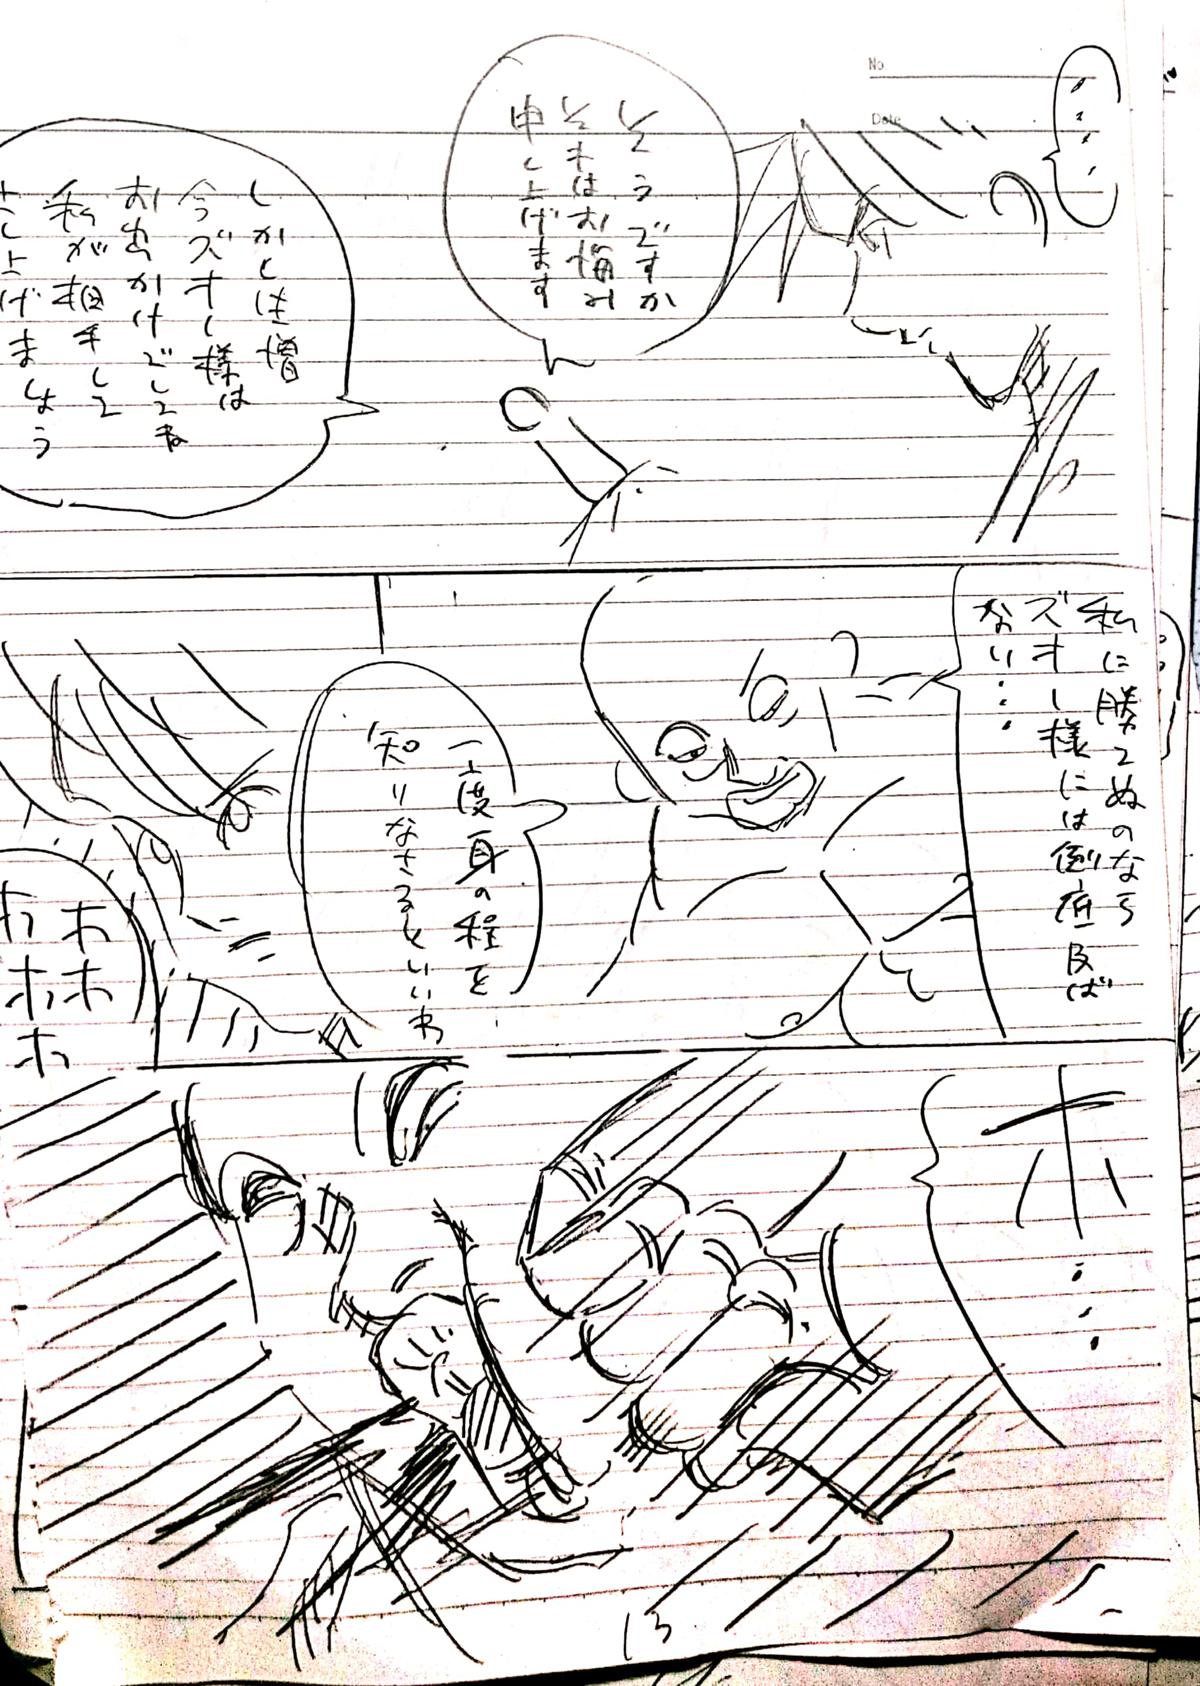 No.
Date
・・・・
そうですか
それはお悔み
申し上げます
しかし生憎
今ズオー様は
お出かけでしてね
私が相手して
さし上げましょう
私に勝てぬのなら
ズオー様には到底及ば
ない・・・
一度身の程を
知りなさるといいわ
ホホホ
ホホホ
ホ・・・
13